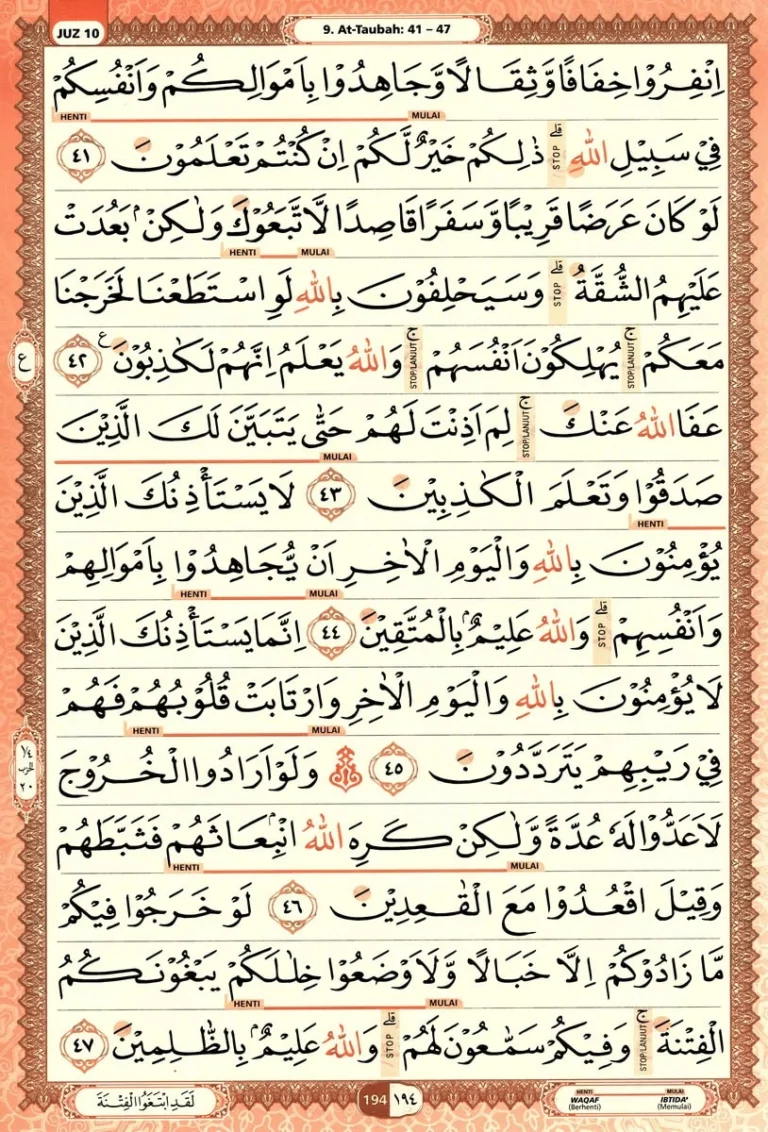 JUZ 10
9. At-Taubah: 41 – 47
اِنْفِرُوْا خِفَافًا وَّثِقَالًا وَّجَاهِدُوْا بِاَمْوَالِكُمْ وَاَنْفُسِكُمْ
HENTI MULAI
فِيْ سَبِيْلِ اللّٰهِ ۗ STOP ذٰلِكُمْ خَيْرٌ لَّكُمْ اِنْ كُنْتُمْ تَعْلَمُوْنَ ٤١
لَوْ كَانَ عَرَضًا قَرِيْبًا وَّسَفَرًا قَاصِدًا لَّاتَّبَعُوْكَ وَلٰكِنْۢ بَعُدَتْ
HENTI MULAI
عَلَيْهِمُ الشُّقَّةُ ۗ STOP وَسَيَحْلِفُوْنَ بِاللّٰهِ لَوِ اسْتَطَعْنَا لَخَرَجْنَا
مَعَكُمْ ۚ STOP/LANJUT يُهْلِكُوْنَ اَنْفُسَهُمْ ۚ STOP/LANJUT وَاللّٰهُ يَعْلَمُ اِنَّهُمْ لَكٰذِبُوْنَ ࣖ ٤٢
ع
عَفَا اللّٰهُ عَنْكَ ۚ STOP/LANJUT لِمَ اَذِنْتَ لَهُمْ حَتّٰى يَتَبَيَّنَ لَكَ الَّذِيْنَ
MULAI
صَدَقُوْا وَتَعْلَمَ الْكٰذِبِيْنَ ٤٣ لَا يَسْتَأْذِنُكَ الَّذِيْنَ
HENTI
يُؤْمِنُوْنَ بِاللّٰهِ وَالْيَوْمِ الْاٰخِرِ اَنْ يُّجَاهِدُوْا بِاَمْوَالِهِمْ
HENTI MULAI
وَاَنْفُسِهِمْ ۗ STOP وَاللّٰهُ عَلِيْمٌۢ بِالْمُتَّقِيْنَ ٤٤ اِنَّمَا يَسْتَأْذِنُكَ الَّذِيْنَ
لَا يُؤْمِنُوْنَ بِاللّٰهِ وَالْيَوْمِ الْاٰخِرِ وَارْتَابَتْ قُلُوْبُهُمْ فَهُمْ
HENTI MULAI
فِيْ رَيْبِهِمْ يَتَرَدَّدُوْنَ ٤٥ ۞ وَلَوْ اَرَادُوا الْخُرُوْجَ
١/٤ الحزب ٢٠
لَاَعَدُّوْا لَهٗ عُدَّةً وَّلٰكِنْ كَرِهَ اللّٰهُ انْۢبِعَاثَهُمْ فَثَبَّطَهُمْ
HENTI MULAI
وَقِيْلَ اقْعُدُوْا مَعَ الْقٰعِدِيْنَ ٤٦ لَوْ خَرَجُوْا فِيْكُمْ
مَّا زَادُوْكُمْ اِلَّا خَبَالًا وَّلَاَوْضَعُوْا خِلٰلَكُمْ يَبْغُوْنَكُمُ
HENTI MULAI
الْفِتْنَةَ ۚ STOP/LANJUT وَفِيْكُمْ سَمّٰعُوْنَ لَهُمْ ۗ STOP وَاللّٰهُ عَلِيْمٌۢ بِالظّٰلِمِيْنَ ٤٧
لَقَدِ ابْتَغَوُا الْفِتْنَةَ
194 ١٩٤
HENTI MULAI
WAQAF IBTIDA'
(Berhenti) (Memulai)